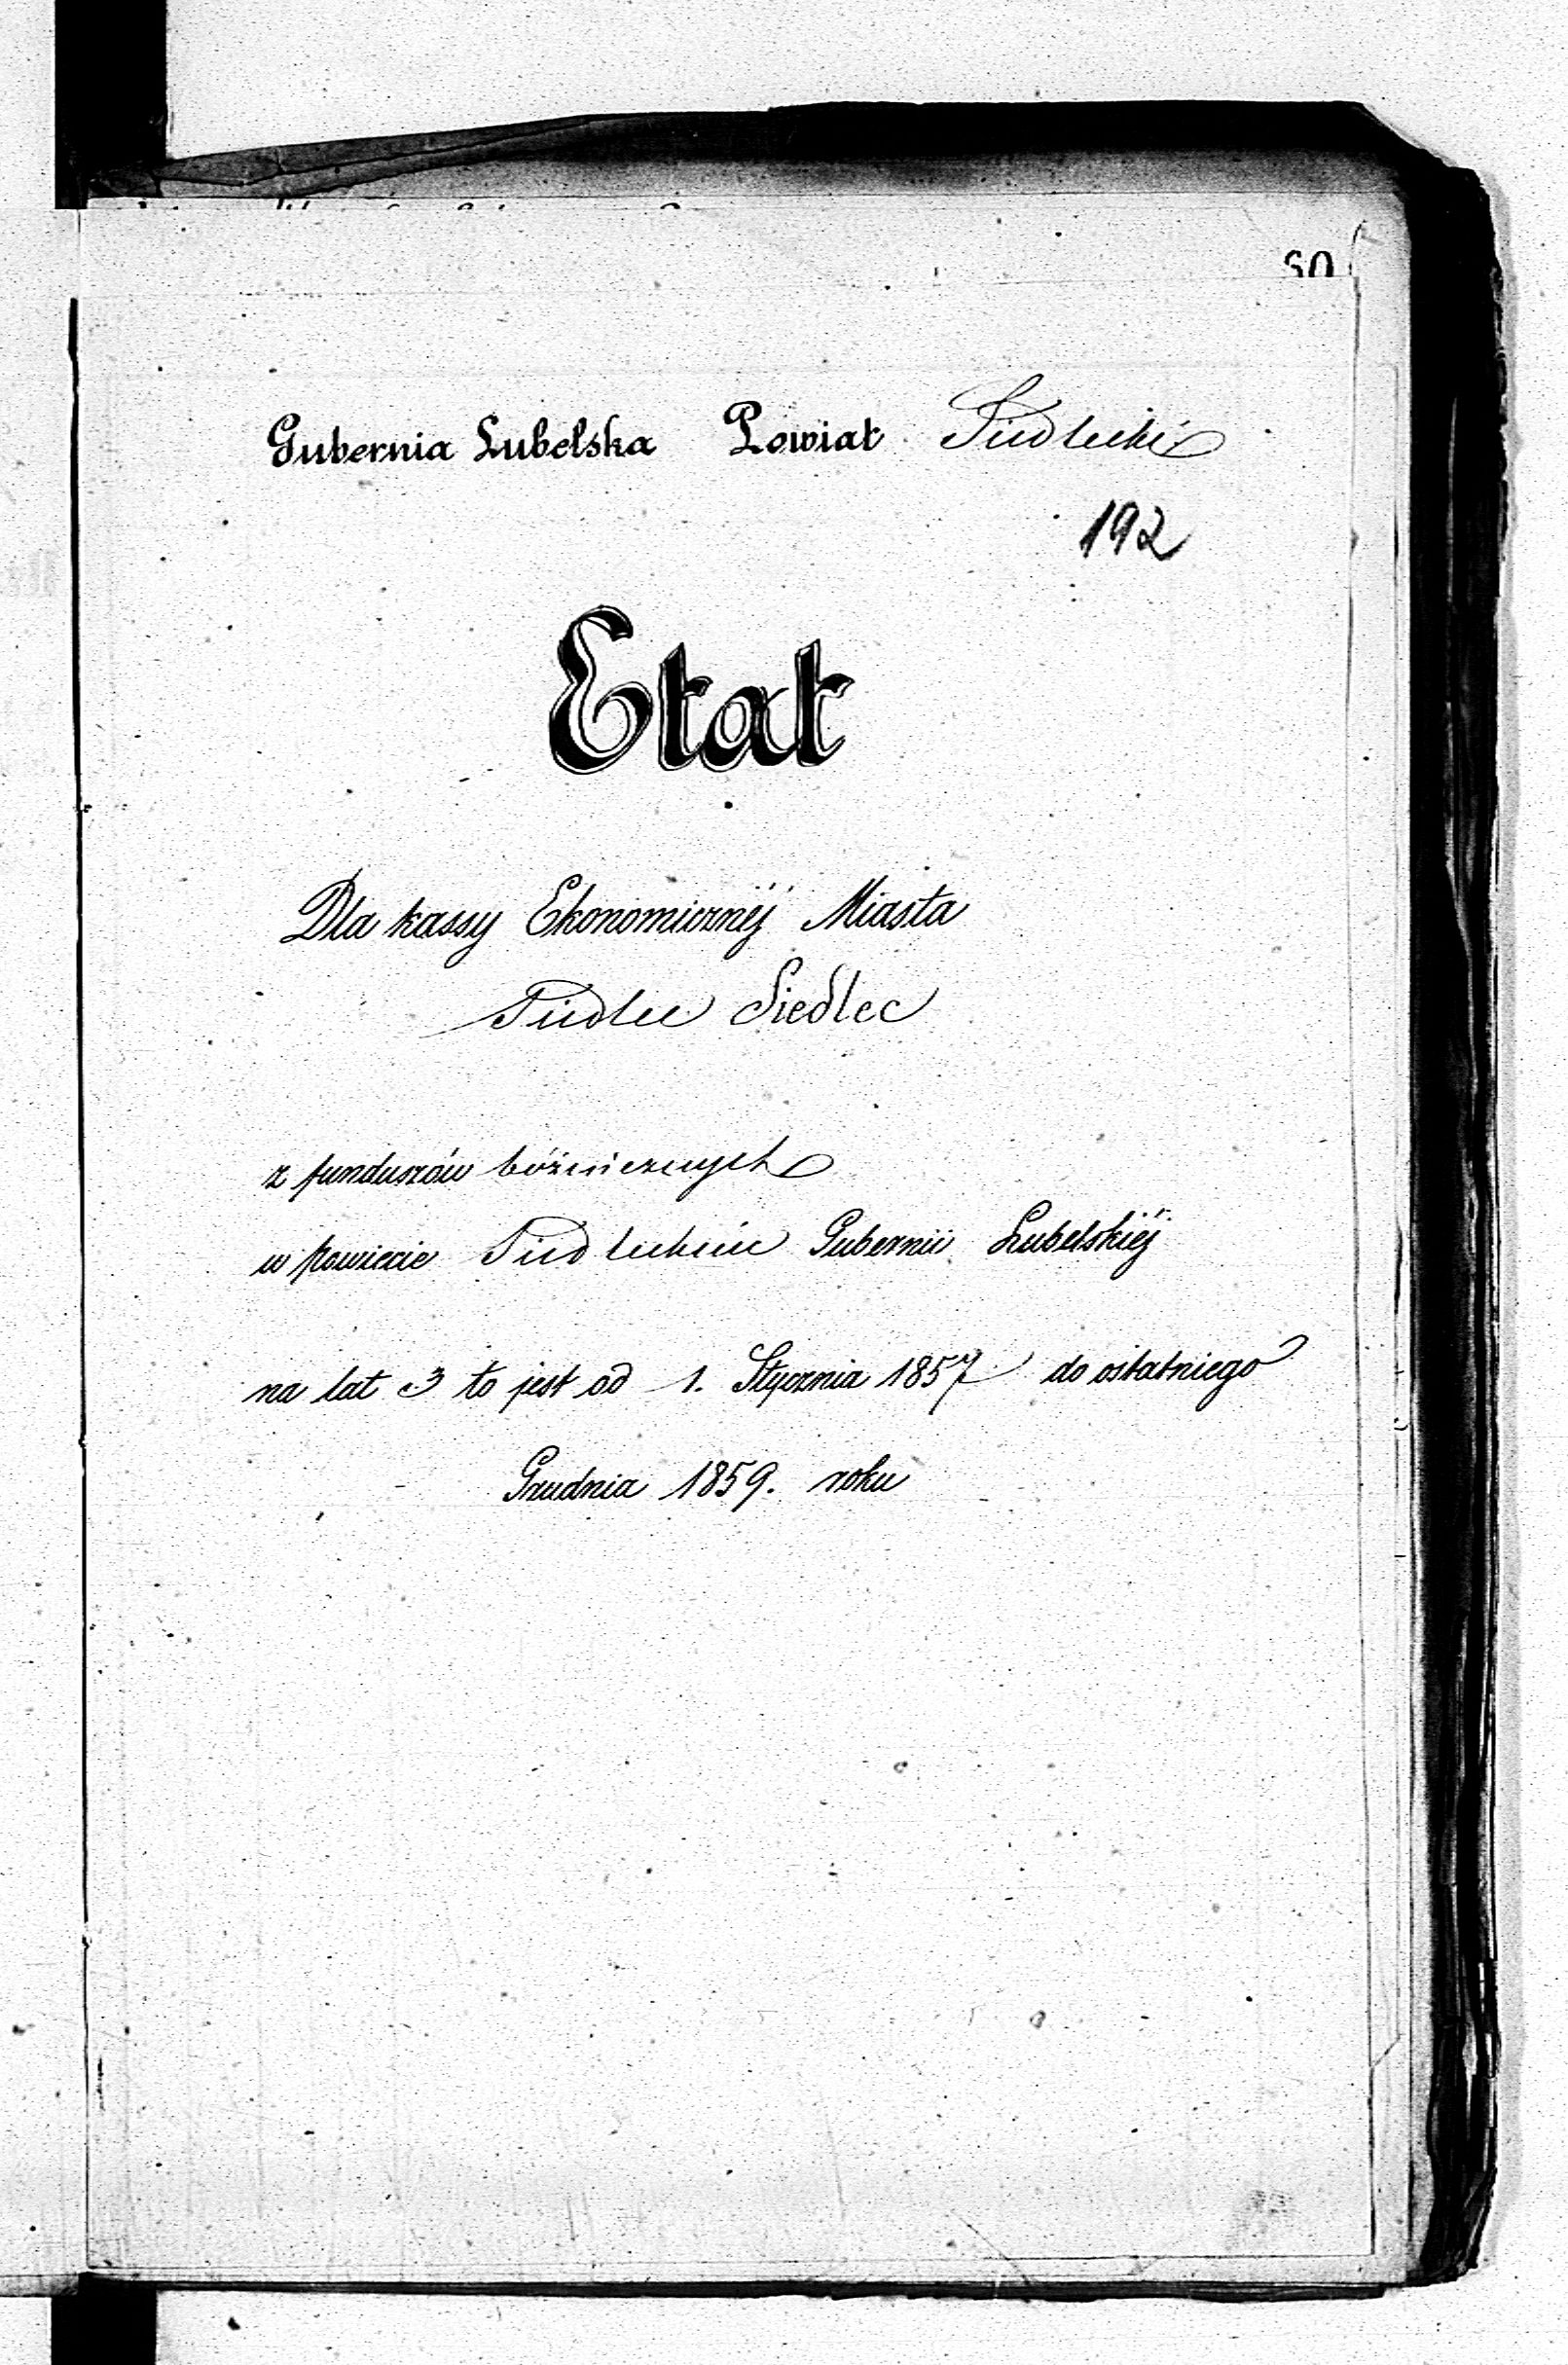 60
Gubernia Lubelska Powiat Siedlecki
192
Etat
Dla kassy Ekonomicznéj Miasta
Siedlec Siedlec
z funduszów bóżniczych
w Powiecie Siedleckim Gubernii Lubelskiéj
na lat 3 to jest od 1. Stycznia 1857 do ostatniego
Grudnia 1859. roku